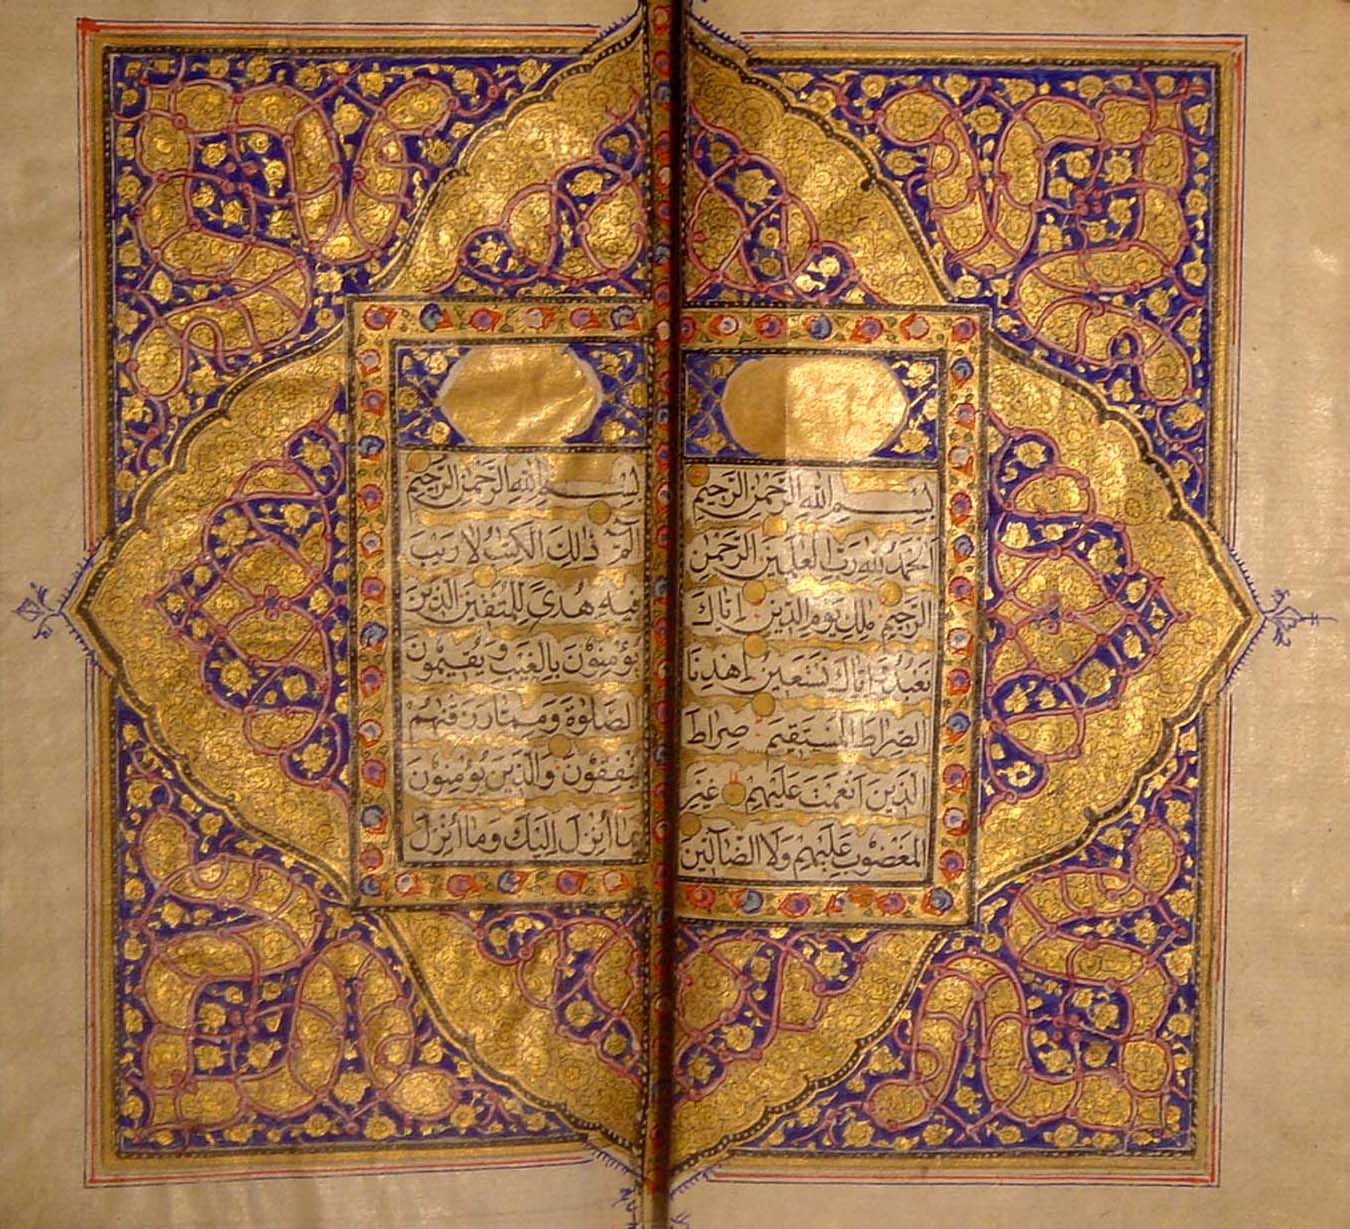 بِسْمِ اللهِ الرَّحْمٰنِ الرَّحِيْمِ
اَلْحَمْدُ لِلّٰهِ رَبِّ الْعٰلَمِيْنَ الرَّحْمٰنِ
الرَّحِيْمِ مٰلِكِ يَوْمِ الدِّيْنِ اِيَّاكَ
نَعْبُدُ وَاِيَّاكَ نَسْتَعِيْنُ اِهْدِنَا
الصِّرَاطَ الْمُسْتَقِيْمَ صِرَاطَ
الَّذِيْنَ اَنْعَمْتَ عَلَيْهِمْ غَيْرِ
الْمَغْضُوْبِ عَلَيْهِمْ وَلَا الضَّآلِّيْنَ
بِسْمِ اللهِ الرَّحْمٰنِ الرَّحِيْمِ
الٓمّٓ ذٰلِكَ الْكِتٰبُ لَا رَيْبَ
فِيْهِ هُدًى لِلْمُتَّقِيْنَ الَّذِيْنَ
يُؤْمِنُوْنَ بِالْغَيْبِ وَيُقِيْمُوْنَ
الصَّلٰوةَ وَمِمَّا رَزَقْنٰهُمْ
يُنْفِقُوْنَ وَالَّذِيْنَ يُؤْمِنُوْنَ
بِمَا اُنْزِلَ اِلَيْكَ وَمَا اُنْزِلَ